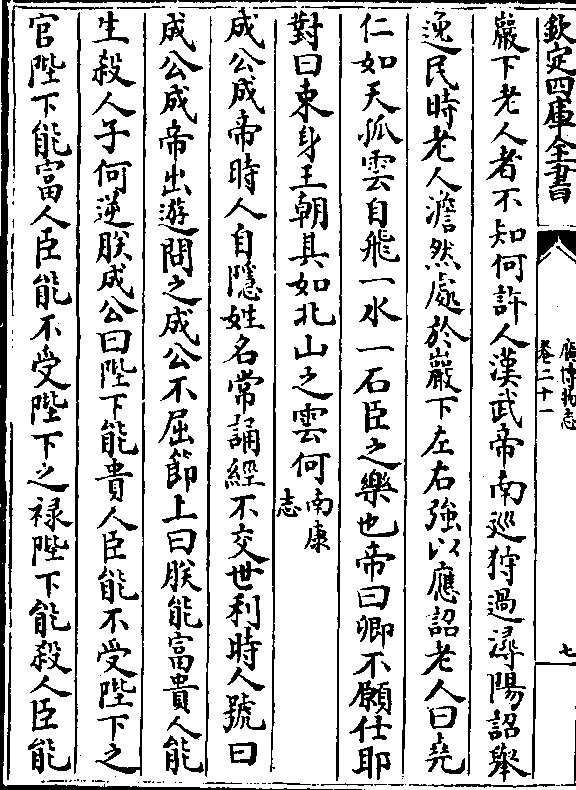 欽定四庫全書
廣博物志
卷二十一
七
巖下老人者不知何許人漢武帝南巡狩過潯陽詔舉
逸民時老人澹然處於巖下左右強以應詔老人曰堯
仁如天孤雲自飛一水一石臣之樂也帝曰卿不願仕耶
對曰束身王朝其如北山之雲何南康
志
成公成帝時人自隱姓名常誦經不交世利時人號曰
成公成帝出遊問之成公不屈節上曰朕能富貴人能
生殺人子何逆朕成公曰陛下能貴人臣能不受陛下之
官陛下能富人臣能不受陛下之禄陛下能殺人臣能